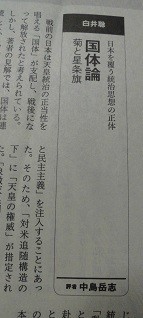 白井聡
日本を覆う統治思想の正体
国体論
菊と星条旗
評者 中島岳志
戦前の日本は天皇統治の正当性を
唱える「国体」が支配し、戦後にな
って解放されたと考えられている。
しかし、著者の見解では、国体は連
と民主主義」を注入することにあっ
た。そのため、「対米追随構造の
下」に「天皇の権威」が措定され